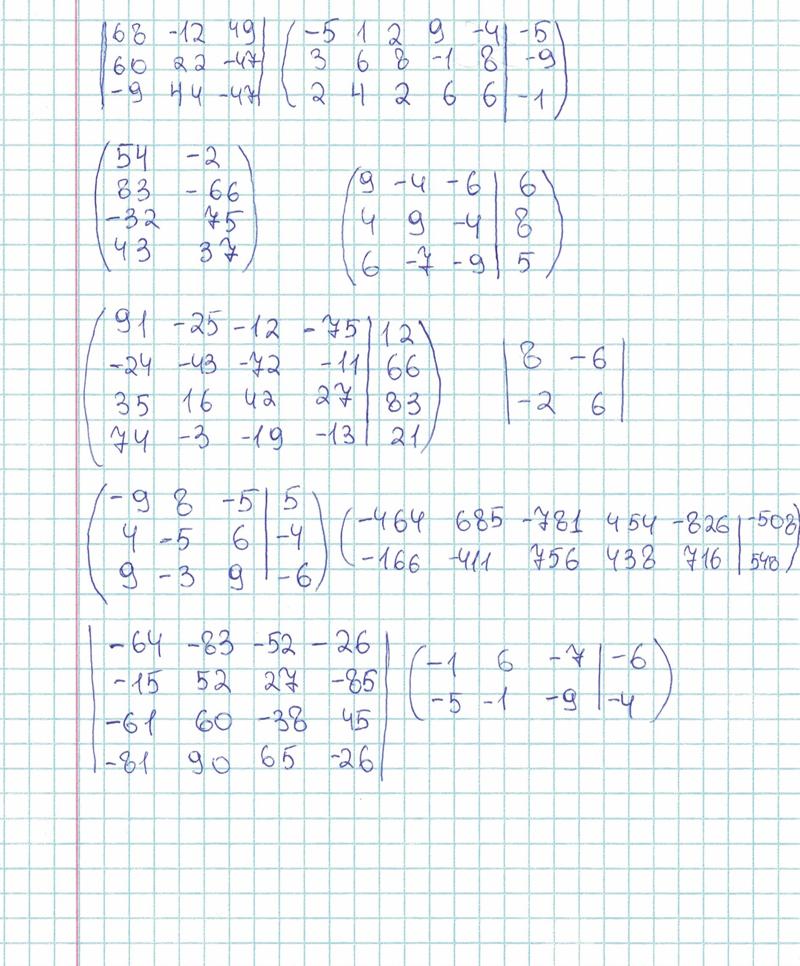 |68 -12 49| (-5 1 2 9 -4 | -5)
|60 22 -47| (3 6 8 -1 8 | -9)
|-9 44 -47| (2 4 2 6 6 | -1)
(54 -2)
(83 -66)
(-32 75)
(43 37)
(9 -4 -6 | 6)
(4 9 -4 | 8)
(6 -7 -9 | 5)
(91 -25 -12 -75 | 12)
(-24 -43 -72 -11 | 66)
(35 16 42 27 | 83)
(74 -3 -19 -13 | 21)
|8 -6|
|-2 6|
(-9 8 -5 | 5)
(4 -5 6 | -4)
(9 -3 9 | -6)
(-464 685 -781 454 -826 | -508)
(-166 -411 756 438 716 | 548)
|-64 -83 -52 -26|
|-15 52 27 -85|
|-61 60 -38 45|
|-81 90 65 -26|
(-1 6 -7 | -6)
(-5 -1 -9 | -4)